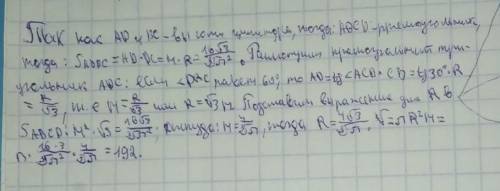 Так как AD и BC - высоты цилиндра, тогда: ABCD - прямоугольник,
тогда: S_ABCD = AD · DC = H · R = 16√3/∛π². Рассмотрим прямоугольный треу-
угольник ADC: если <DAC равен 60°, то AD = tg <ACD · CD = tg 30° · R
= R/√3, т.е H = R/√3 или R = √3 H Подставим выражение для R в
S_ABCD: H² · √3 = 16√3/∛π², откуда: H = 4/∛π, тогда R = 4√3/∛π, V = πR²H =
π · 16·3/∛π² · 4/∛π = 192.